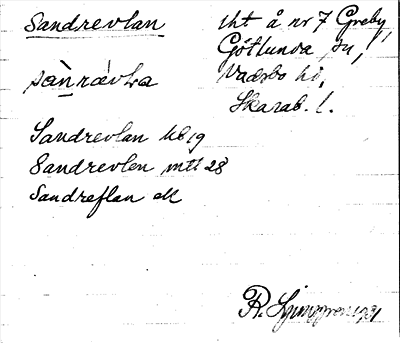 Sandrevlan tht å nr 7 Greby,
Götlunda sn,
sànrævla Vadsbo hd,
Skarab. l.
Sandrevlan hb 19
Sandrevlen mtl 28
Sandreflan eM
R. Ljunggren 1931